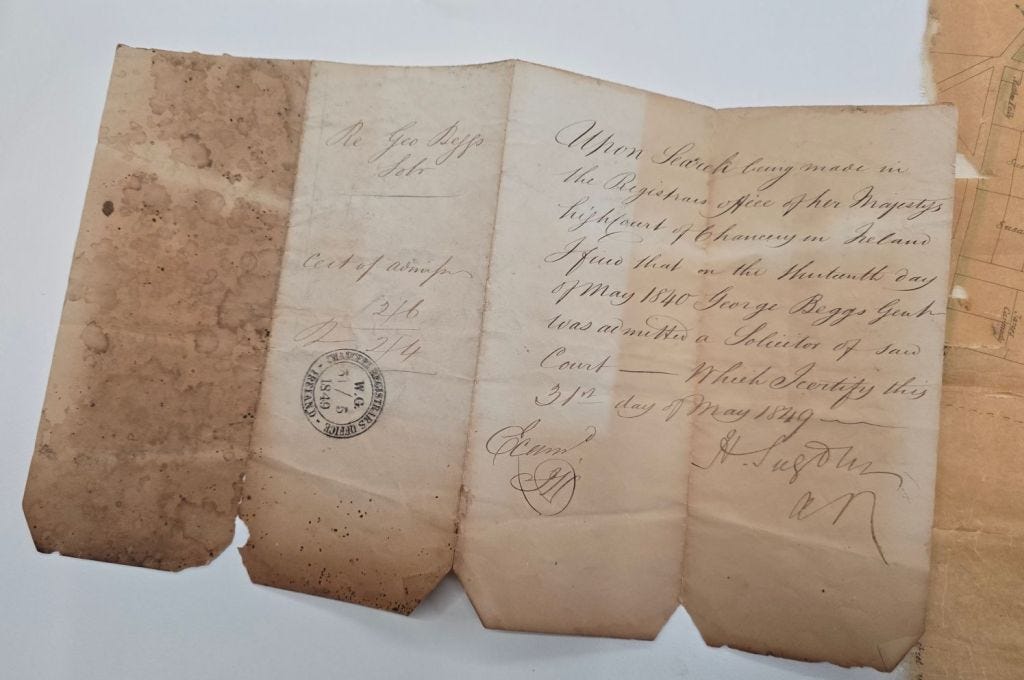 Re Geo Beggs
Solr
Cert of Admissn
2/6
2/4
REGISTRARS OFFICE
W.G.
31/5
1849
Upon Search being made in
the Registrars office of her Majestys
high Court of Chancery in Ireland
I find that on the thirteenth day
of May 1840 George Beggs Gent
was admitted a Solicitor of said
Court — Which I certify this
31st day of May 1849 —
Examd
H. Sugden